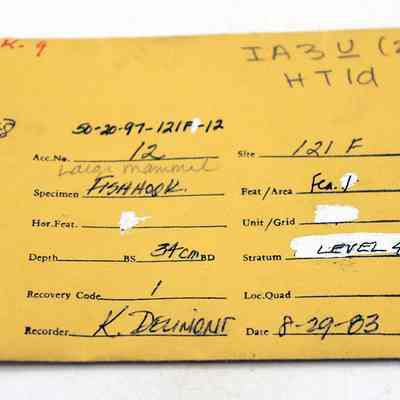 K-9
IA3U (2
HT1d
50-20-97-121F-12
Acc.No. 12 Site 121 F
Large mammal
Specimen FISHHOOK. Feat/Area Fea. 1
Hor.Feat. Unit/Grid
Depth BS 34cm BD Stratum LEVEL
Recovery Code 1 Loc.Quad
Recorder K. DELIMONT Date 8-29-83